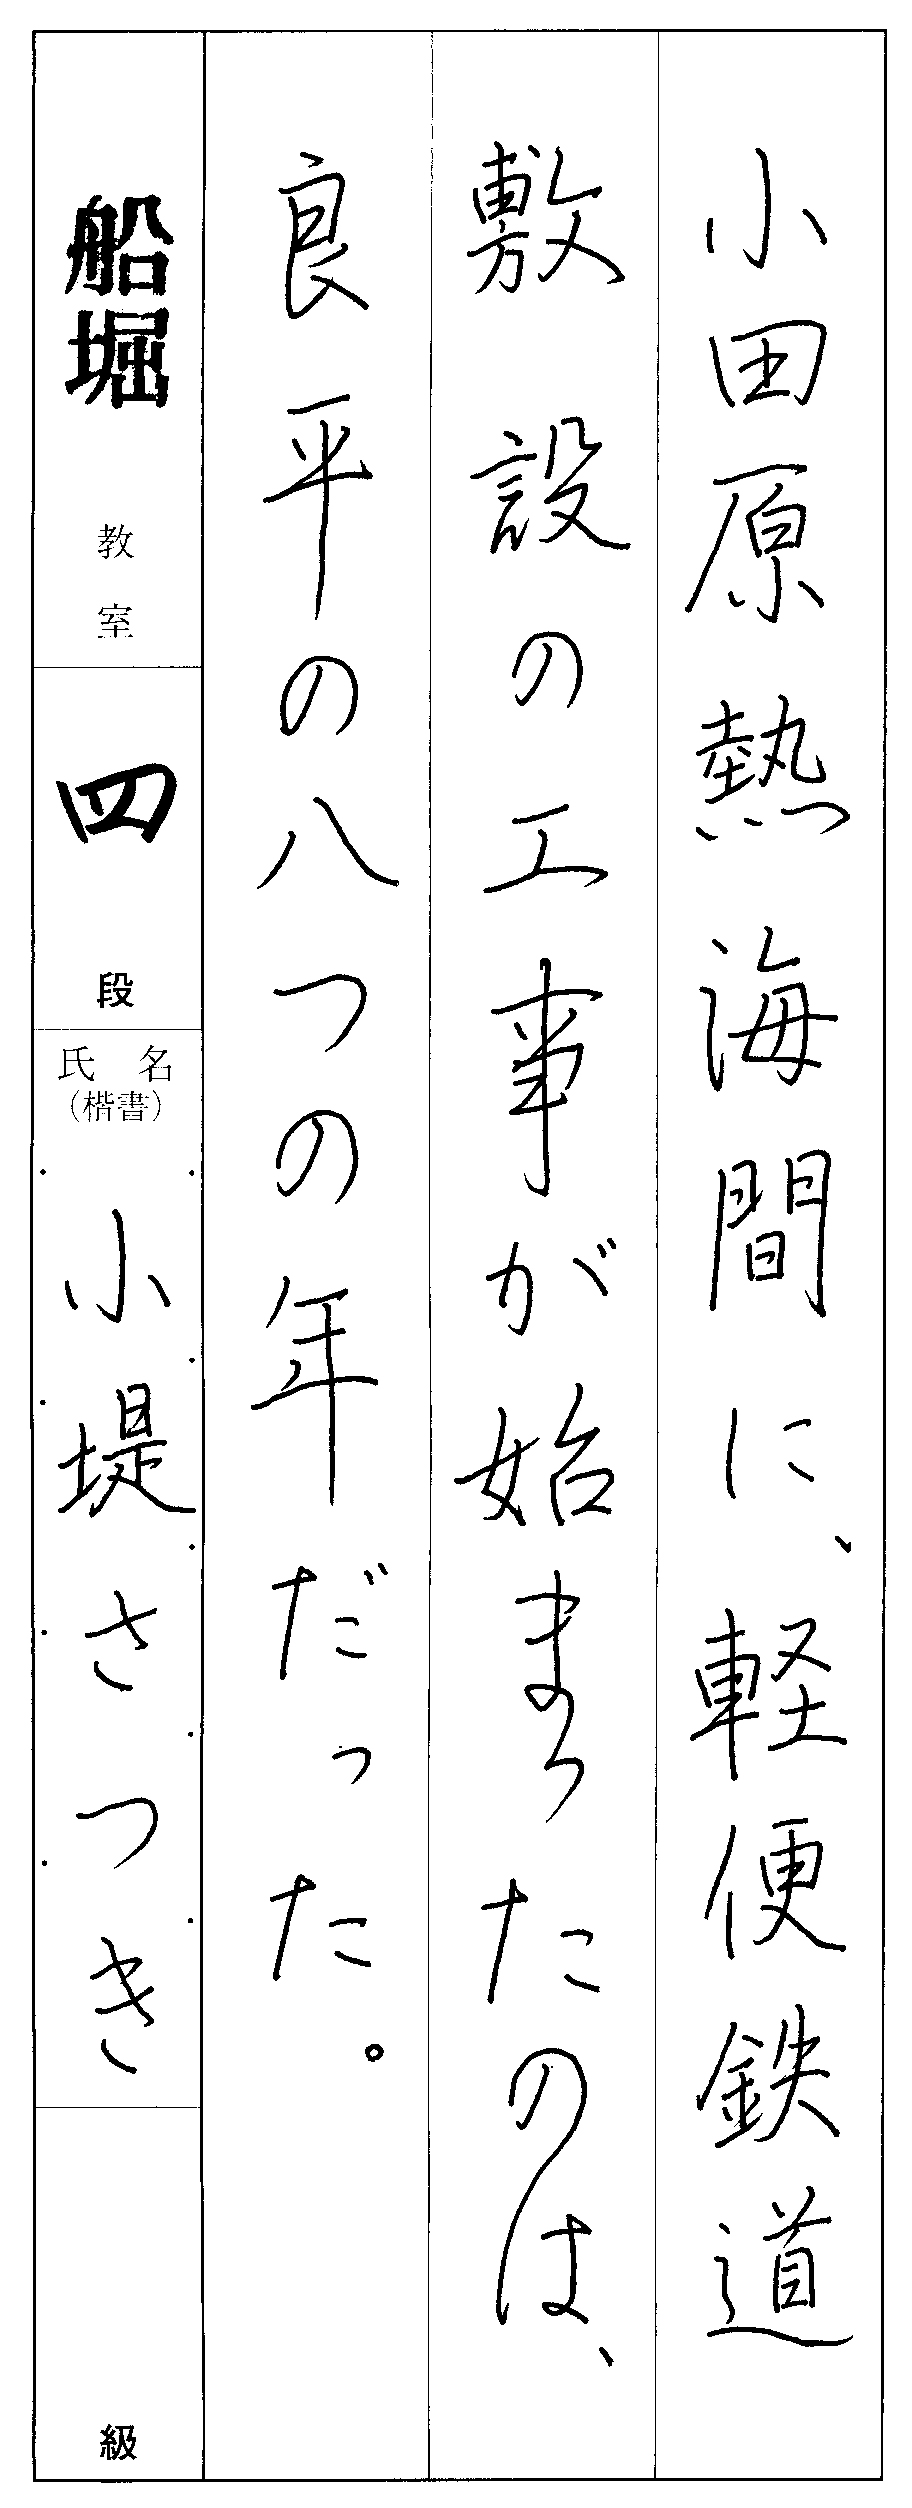 小田原熱海間に、軽便鉄道
敷設の工事が始まったのは、
良平の八つの年だった。
船堀教室
四段
氏名
（楷書）
小堤さつき
級